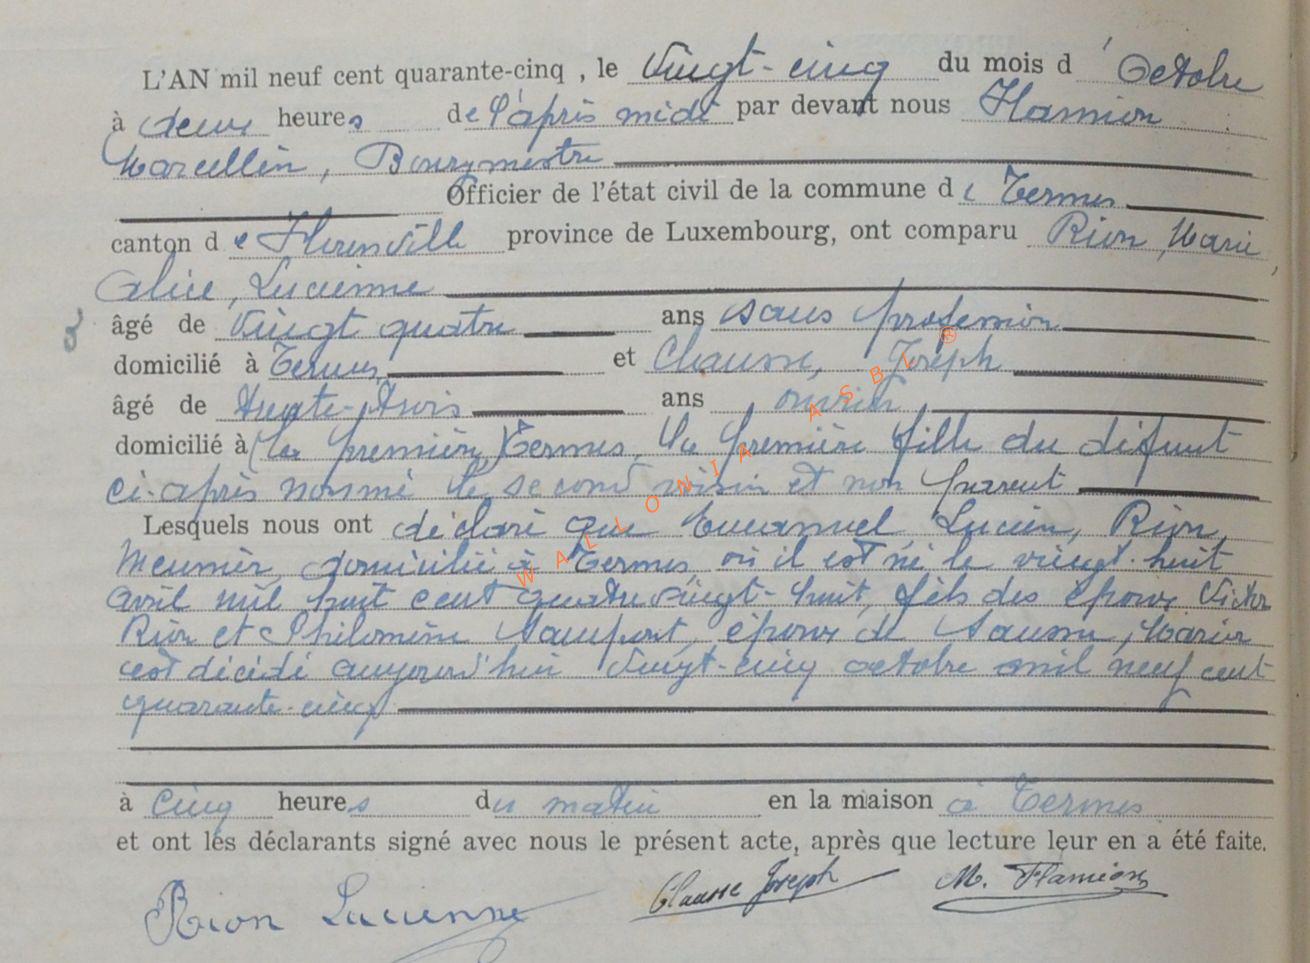 L'AN mil neuf cent quarante-cinq, le Vingt-cinq du mois d'Octobre
à deux heures de l'après midi par devant nous Flamion
Marcellin, Bourgmestre
Officier de l'état civil de la commune de Termes
canton de Florenville province de Luxembourg, ont comparu Rion, Marie,
Alice, Lucienne
âgé de Vingt quatre ans sans profession
domicilié à Termes et Clausse, Joseph
âgé de trente-trois ans ouvrier
domicilié à (la première) Termes, la première fille du défunt
ci-après nommé le second voisin et non parent
Lesquels nous ont déclaré que Emmanuel, Lucien, Rion,
Meunier, domicilié à Termes où il est né le vingt-huit
avril mil huit cent quatre vingt-huit, fils des époux Victor
Rion et Philomène époux de Maria
est décédé aujourd'hui Vingt-cinq octobre mil neuf cent
quarante-cinq
à cinq heures du matin en la maison à Termes
et ont les déclarants signé avec nous le présent acte, après que lecture leur en a été faite.
Rion Lucienne Clausse Joseph M. Flamion
WALLONIA ASBL ®